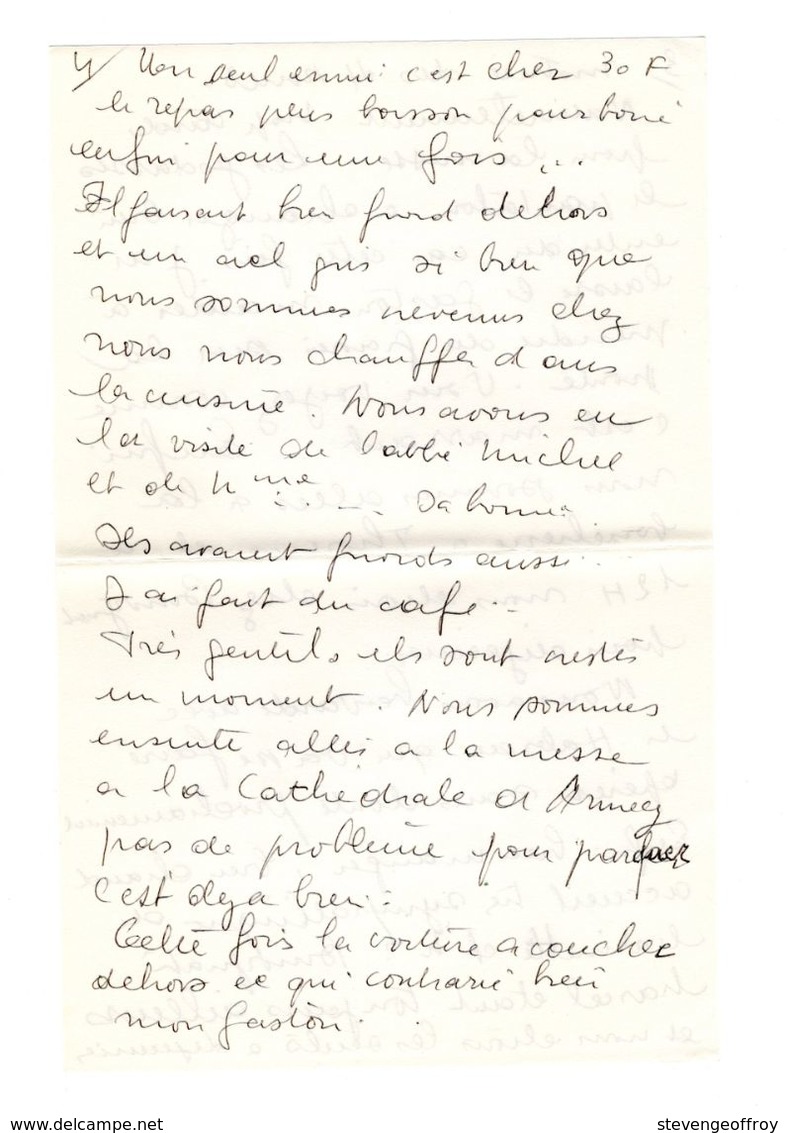 4/ Mon seul ennui c'est cher 30 F
le repas plus boisson pourboire
enfin pour une fois ...
Il faisait bien froid dehors
et un ciel gris si bien que
nous sommes revenus chez
nous nous chauffer dans
la cuisine. Nous avons eu
la visite de l'abbé Michel
et de Mme
Ils avaient froids aussi..
J ai fait du café..
Très gentils ils sont restés
un moment. Nous sommes
ensuite allés a la messe
a la Cathédrale d Annecy
pas de problème pour parquer
c'est deja bien.
Cette fois la voiture a coucher
dehors ce qui contrarie bien
mon Gaston.
delcampe.net
stevengeoffroy